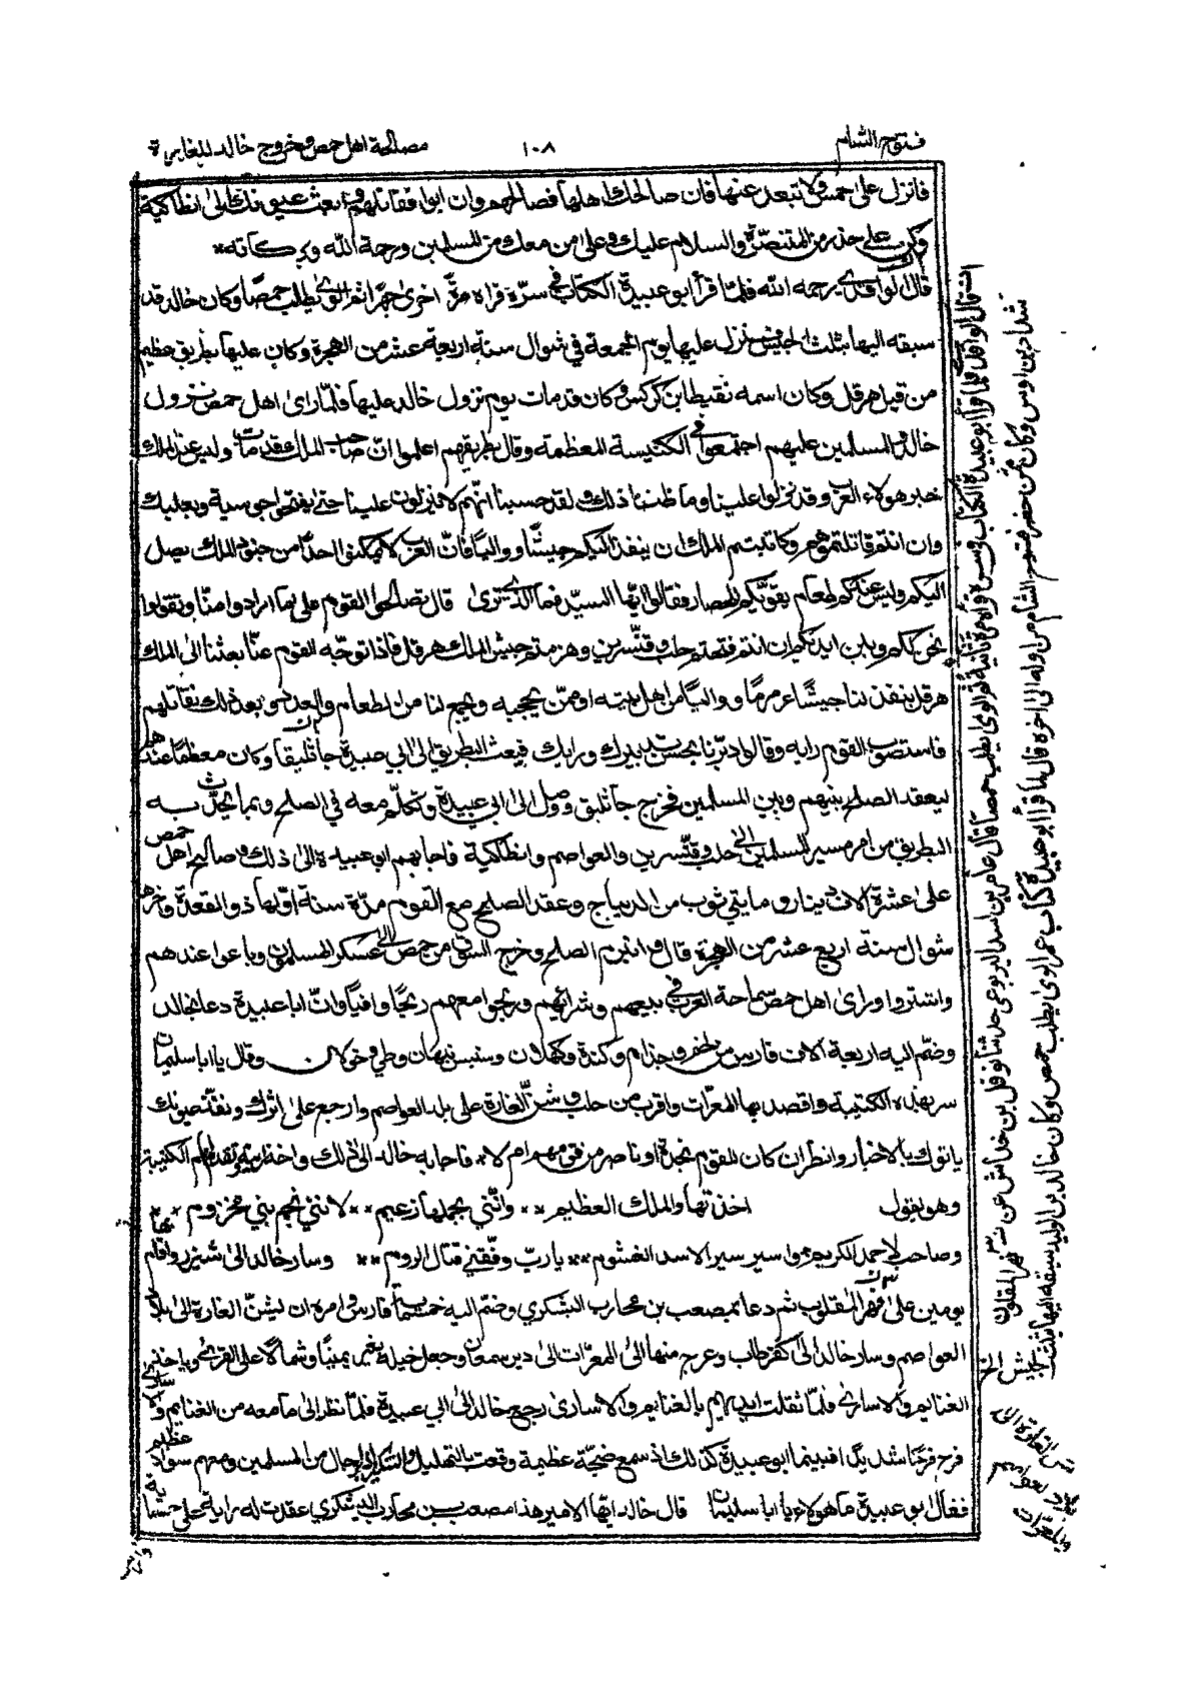 فتوح الشام
١٠٨
مصالحة اهل حمص وخروج خالد للغارة
فانزل على حمص ولا تبعد عنها فان صالحك اهلها فصالحهم وان ابوا فقاتلهم وابعث عيونك الى انطاكية
وكن على حذر من المتنصرة والسلام عليك وعلى من معك من المسلمين ورحمة الله وبركاته *
قال الواقدي رحمه الله فلما قرأ ابو عبيدة الكتاب في سرّه قراه مرة اخرى جهرا ثم الوى يطلب حمصا وكان خالد قد
سبقه اليها بثلث الجيش فنزل عليها يوم الجمعة في شوال سنة اربعة عشر من الهجرة وكان عليها بطريق عظيم
من قبل هرقل وكان اسمه نقيطا بن كركس وكان قد مات يوم نزول خالد عليها فلمّا راى اهل حمص نزول
خالد والمسلمين عليهم اجتمعوا في الكنيسة المعظمه وقال بطريقهم اعلموا انّ صاحب الملك قد مات وليس عند الملك
خبر هولاء العرب وقد نزلوا علينا وما ظننا ذلك ولقد حسبنا انّهم لا ينزلون علينا حتى يفتحوا جوسية وبعلبك
وان انتم قاتلتموهم وكاتبتم الملك ان ينفذ اليكم جيشًا وواليًا فانّ العرب لا يمكنوا احدًا من جنود الملك يصل
اليكم وليس عندكم طعام يقوّيكم للحصار فقالوا ايّها السيّد فما الذي ترى قال نصالحوا القوم على ما ارادوا منّا وتقولوا
نحن لكم وبين ايديكم ان انتم فتحتم حلب وقنّسرين وهزمتم جيش الملك هرقل فاذا توجّه القوم عنّا بعثنا الى الملك
هرقل ينفذ لنا جيشًا عرمرمًا وواليًا من اهل بيته او ممّن يحجبه ويجمع لنا من الطعام والعدد وبعد ذلك نقاتلهم
فاستصوب القوم رايه وقالوا دبّرنا بحسن تدبيرك ورايك فبعث البطريق الى ابي عبيدة جاثليقا وكان معظمًا عندهم
ليعقد الصلح بينهم وبين المسلمين فخرج جاثليق ووصل الى ابي عبيدة وتكلّم معه في الصلح وبما تحدّث به
البطريق من امر مسير المسلمين الى حلب وقنّسرين والعواصم وانطاكية فاجابهم ابو عبيدة الى ذلك وصالح اهل حمص
على عشرة آلاف دينار ومايتي ثوب من الديباج وعقد الصلح مع القوم مدّة سنة اوّلها ذو القعدة واخرها
شوال سنة اربع عشر من الهجرة قال وانبرم الصلح وخرج السوق من حمص الى عسكر المسلمين وباعوا عندهم
واشتروا وراى اهل حمص سماحة العرب في بيعهم وشرائهم وربحوا معهم ربحًا وافيًا وانّ ابا عبيدة دعا بخالد
وضم اليه اربعة الاف فارس من لخم وجذام وكندة وكهلان وسنبس نبهان وطي وخولان وقال يا ابا سليمان
سر بهذه الكتيبة واقصد بها المعرّات واقرب من حلب وشنّ الغارة على بلد العواصم وارجع على اثرك ونفّذ عيونك
ياتوك بالاخبار وانظر ان كان للقوم نجدة او ناصر من قومهم ام لا * فاجابه خالد الى ذلك واخذ رايته وتقدّم امام الكتيبة
وهو يقول اخذتها والملك العظيم ** وانّني بحملها زعيم ** لانّني نجم بني مخزوم **
وصاحب لاحمد الكريم ** اسير سير الاسد الغشوم ** يا ربّ وفّقني قتال الروم ** وسار خالد الى شيزر واقام بها
يومين على نهر المقلوب ثم دعا بمصعب بن محارب اليشكري وضمّ اليه خمسمائة فارس وامره ان يشنّ الغارة الى بلاد
العواصم وسار خالد الى كفرطاب وعرج منها الى المعرّات الى دير سمعان وجعل خيله تغير يمينًا وشمالا على القرى وياخذ
الغنايم والاسارى فلمّا ثقلت ايديهم بالغنايم والاسارى رجع خالد الى ابي عبيدة فلمّا نظر الى ما معه من الغنايم والاسارى
فرح فرحًا شديدًا فبينما ابو عبيدة كذلك اذ سمع ضجّة عظيمة وقعت بالتهليل والتكبير واذا برجال من المسلمين ومعهم سواد عظيم
فقال ابو عبيدة ما هولاء يا ابا سليمان قال خالد ايّها الامير هذا مصعب بن محارب اليشكري عقدت له راية على خمسماية
قال الواقدي فلما قرأ ابو عبيدة الكتاب في سرّه قرأه مرة ثانية ثم الوى يطلب حمصا قال عامر بن اسد اليربوعي حدثنا نوفل بن خداش عن
شداد بن اوس وكان ممن حضر فتوح الشام من اوله الى اخره قال لما قرأ ابو عبيدة كتاب عمر الوى يطلب حمص وكان خالد بن الوليد سبقه اليها بثلث
جيش الخ
نهر المقلوب